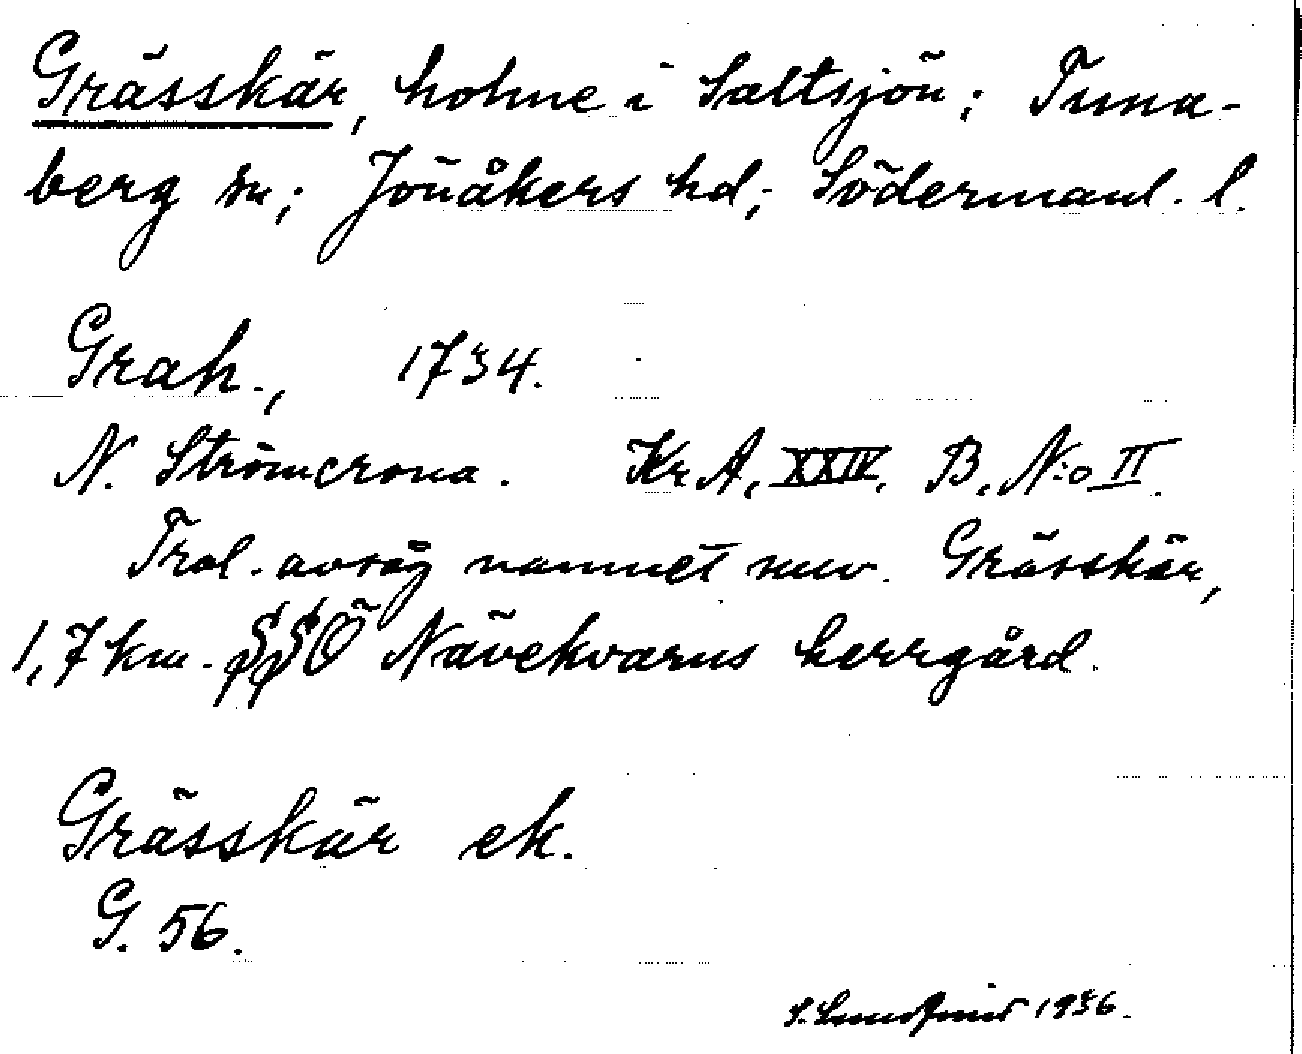 Grässkär, holme i Saltsjön; Tuna-
berg sn; Jönåkers hd; Södermanl. l.
Grah., 1734.
N. Strömcrona. Kr A, XXIV, B, N:o II.
Trol. avsåg namnet nuv. Grässkär,
1,7 km. SSÖ Nävekvarns herrgård.
Grässkär ek.
G. 56.
S. 1936.